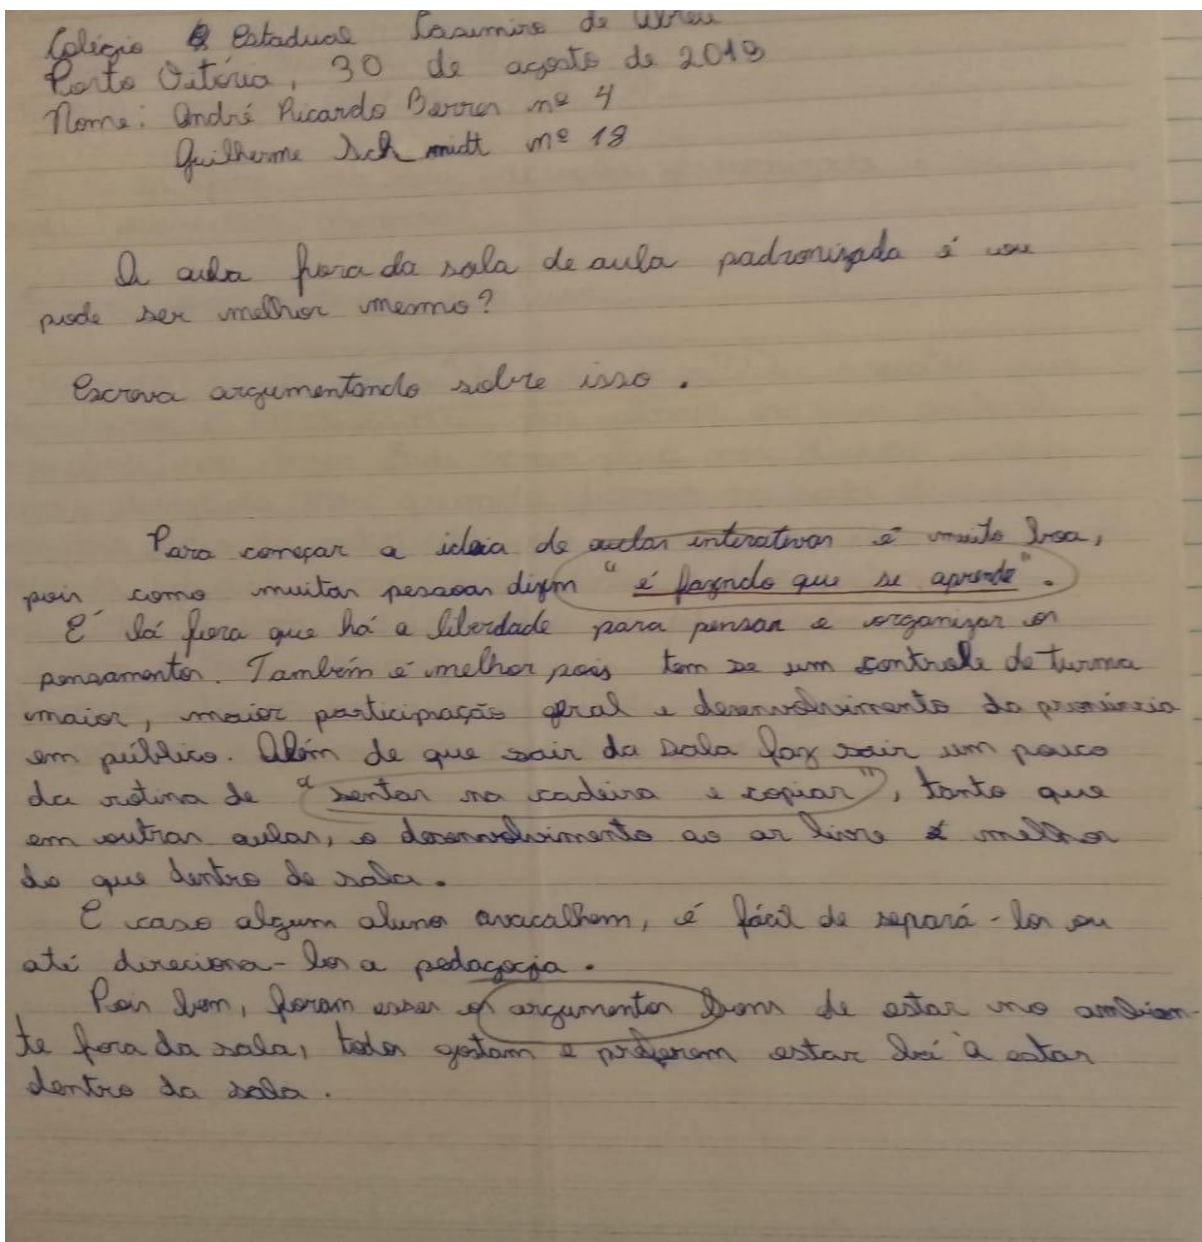 Colégio Estadual Casimiro de Abreu
Porto Vitória, 30 de agosto de 2019
Nome: André Ricardo nº 4
Guilherme Schmidt nº 18
A aula fora da sala de aula padronizada é ou
pode ser melhor mesmo?
Escreva argumentando sobre isso.
Para começar a ideia de aulas interativas é muito boa,
pois como muitas pessoas dizem "é fazendo que se aprende".
É lá fora que há a liberdade para pensar e organizar os
pensamentos. Também é melhor pois tem se um controle de turma
maior, maior participação geral e desenvolvimento da pronúncia
em público. Além de que sair da sala faz sair um pouco
da rotina de "sentar na cadeira e copiar", tanto que
em outras aulas, o desenvolvimento ao ar livre é melhor
do que dentro de sala.
E caso algum alunos avacalhem, é fácil de separá-los ou
até direciona-los a pedagogia.
Pois bem, foram esses os argumentos bons de estar no ambien-
te fora da sala, todos gostam e preferem estar lá à estar
dentro da sala.